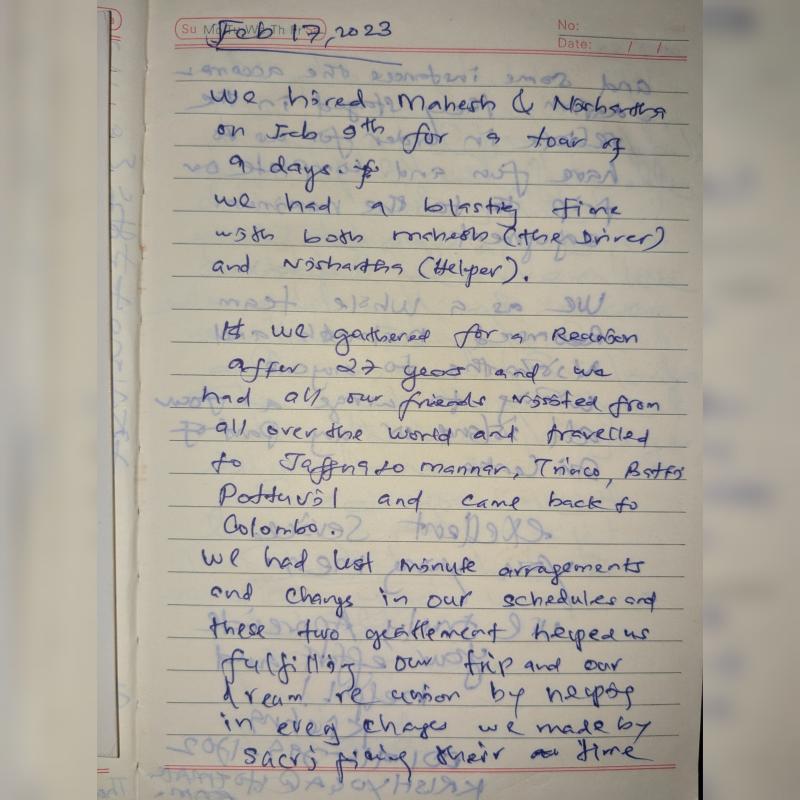 Su Mo Tu We Th Fr
No:
Date: / /
Feb 17, 2023
We hired Mahesh & Nishantha
on Feb 9th for a toar of
9 days.
we had a blastig time
with both mahesh (the Driver)
and Nishantha (Helper).
we gathered for a Reunion
affer 27 years and we
had all our friends visited from
all over the world and travelled
to Jaffna to mannar, Trinco, Batti
Pottuvil and came back to
Colombo.
we had last minute arragements
and changs in our schedules and
these two geattlement helped us
fulfillig our trip and our
dream reunion by helpig
in every chages we made by
sacrifising their time